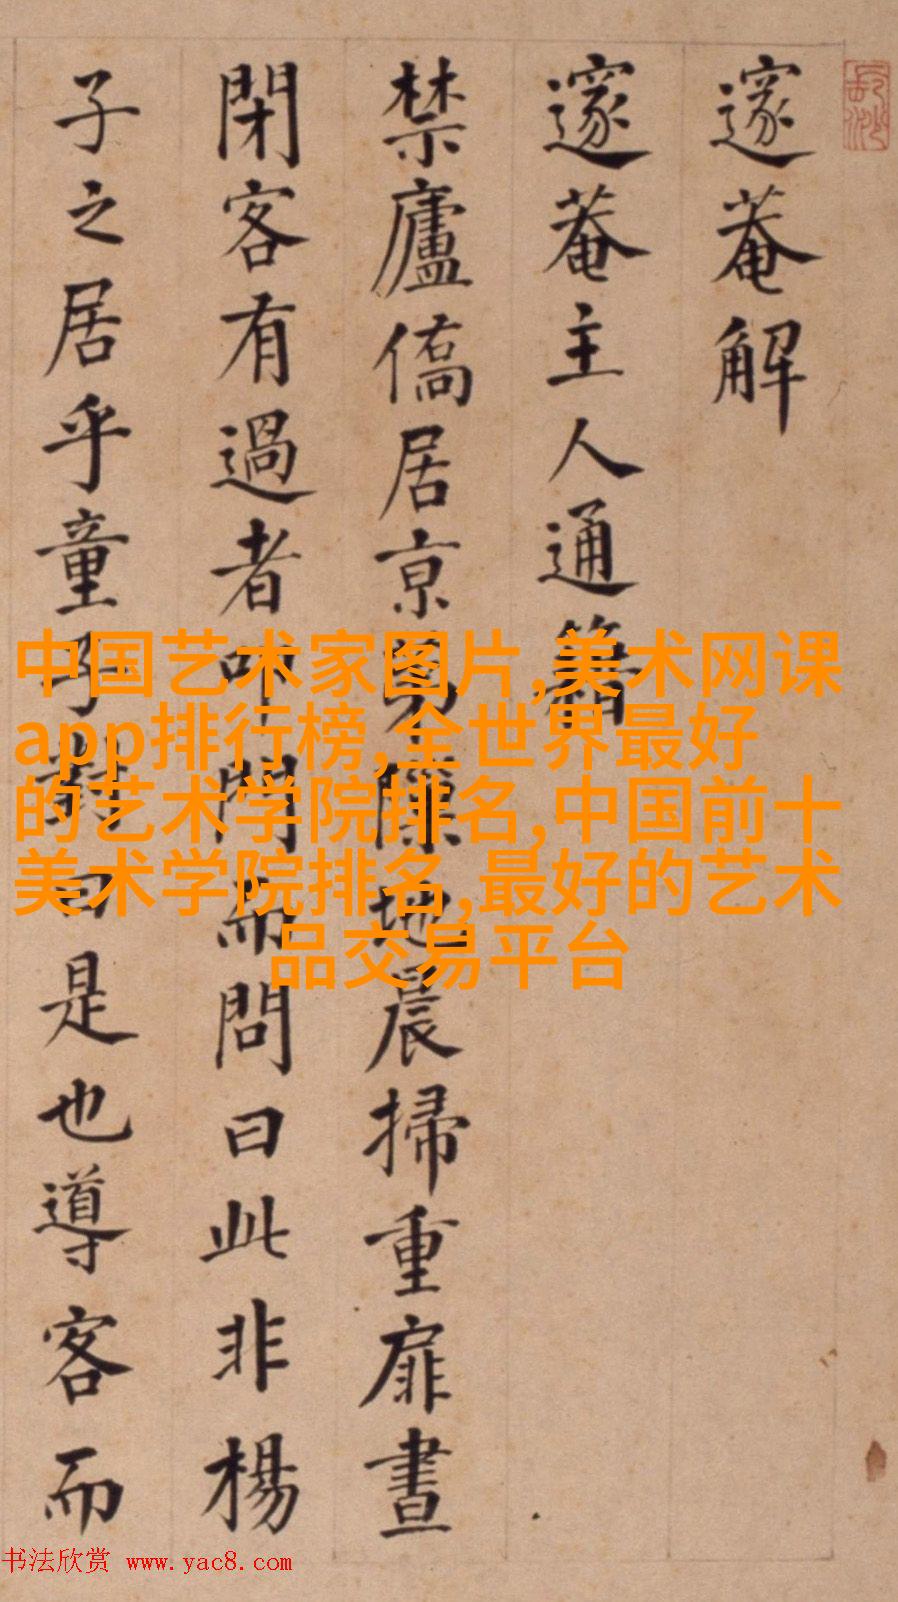 邃菴解
邃菴主人通籍
禁廬僑居京 地晨掃重扉晝
閉客有過者叩閽而問曰此非楊
子之居乎童子對曰是也導客而
中国艺术家图片,美术网课
app排行榜,全世界最好
的艺术学院排名,中国前十
美术学院排名,最好的艺术
品交易平台
书法欣赏 www.yac8.com